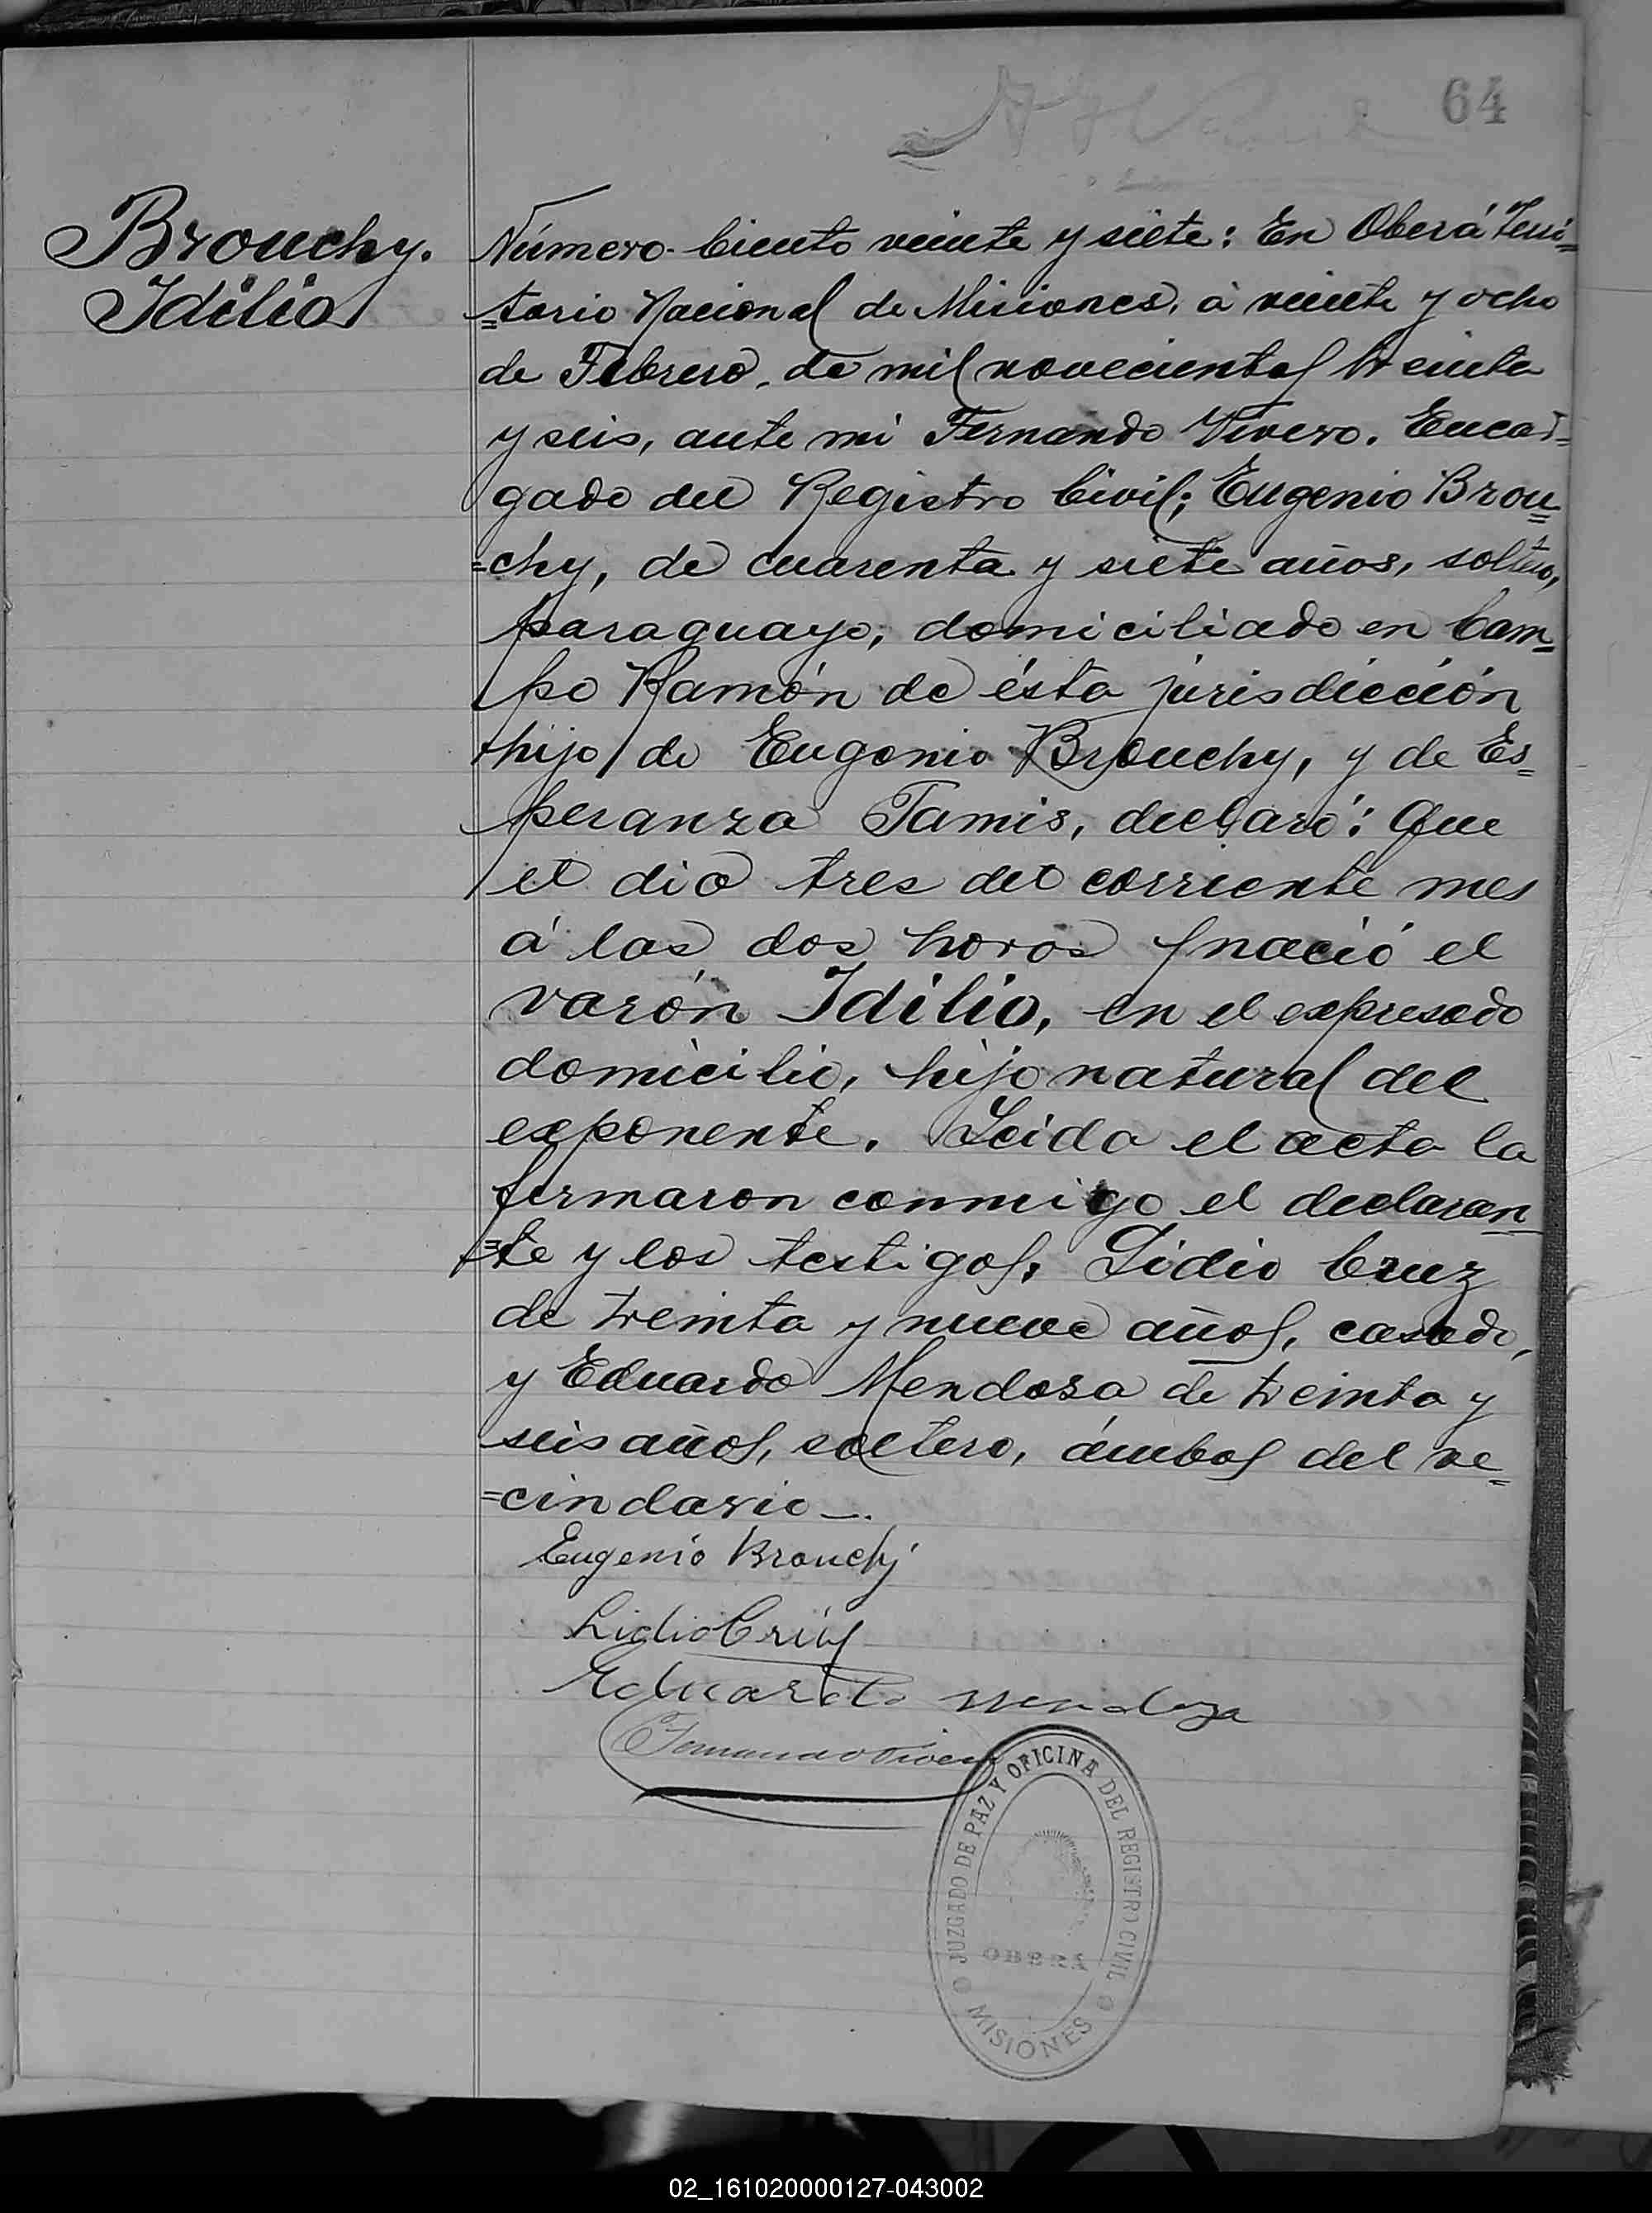 64
Brouchy.
Idilio
Número ciento veinte y siete: En Oberá Terri=
=torio Nacional de Misiones, á veinte y ocho
de Febrero, de mil novecientos treinta
y seis, ante mi Fernando Vivero. Encar=
gado del Registro Civil; Eugenio Brou=
=chy, de cuarenta y siete años, soltero,
paraguayo, domiciliado en Cam=
po Ramón de ésta jurisdicción
hijo de Eugenio Brouchy, y de Es=
peranza Tamis, declaró: Que
el dia tres del corriente mes
á las dos horas nació el
varón Idilio, en el expresado
domicilio, hijo natural del
exponente. Leida el acta la
firmaron conmigo el declaran
=te y los testigos, Lidio Cruz
de treinta y nueve años, casado,
y Eduardo Mendosa de treinta y
seis años, soltero, ámbos del ve=
=cindario_.
Eugenio Brouchy
Lidio Crúz
Eduardo Mendoza
Fernando Vivero
JUZGADO DE PAZ Y OFICINA DEL REGISTRO CIVIL
OBERA
MISIONES
02_161020000127-043002